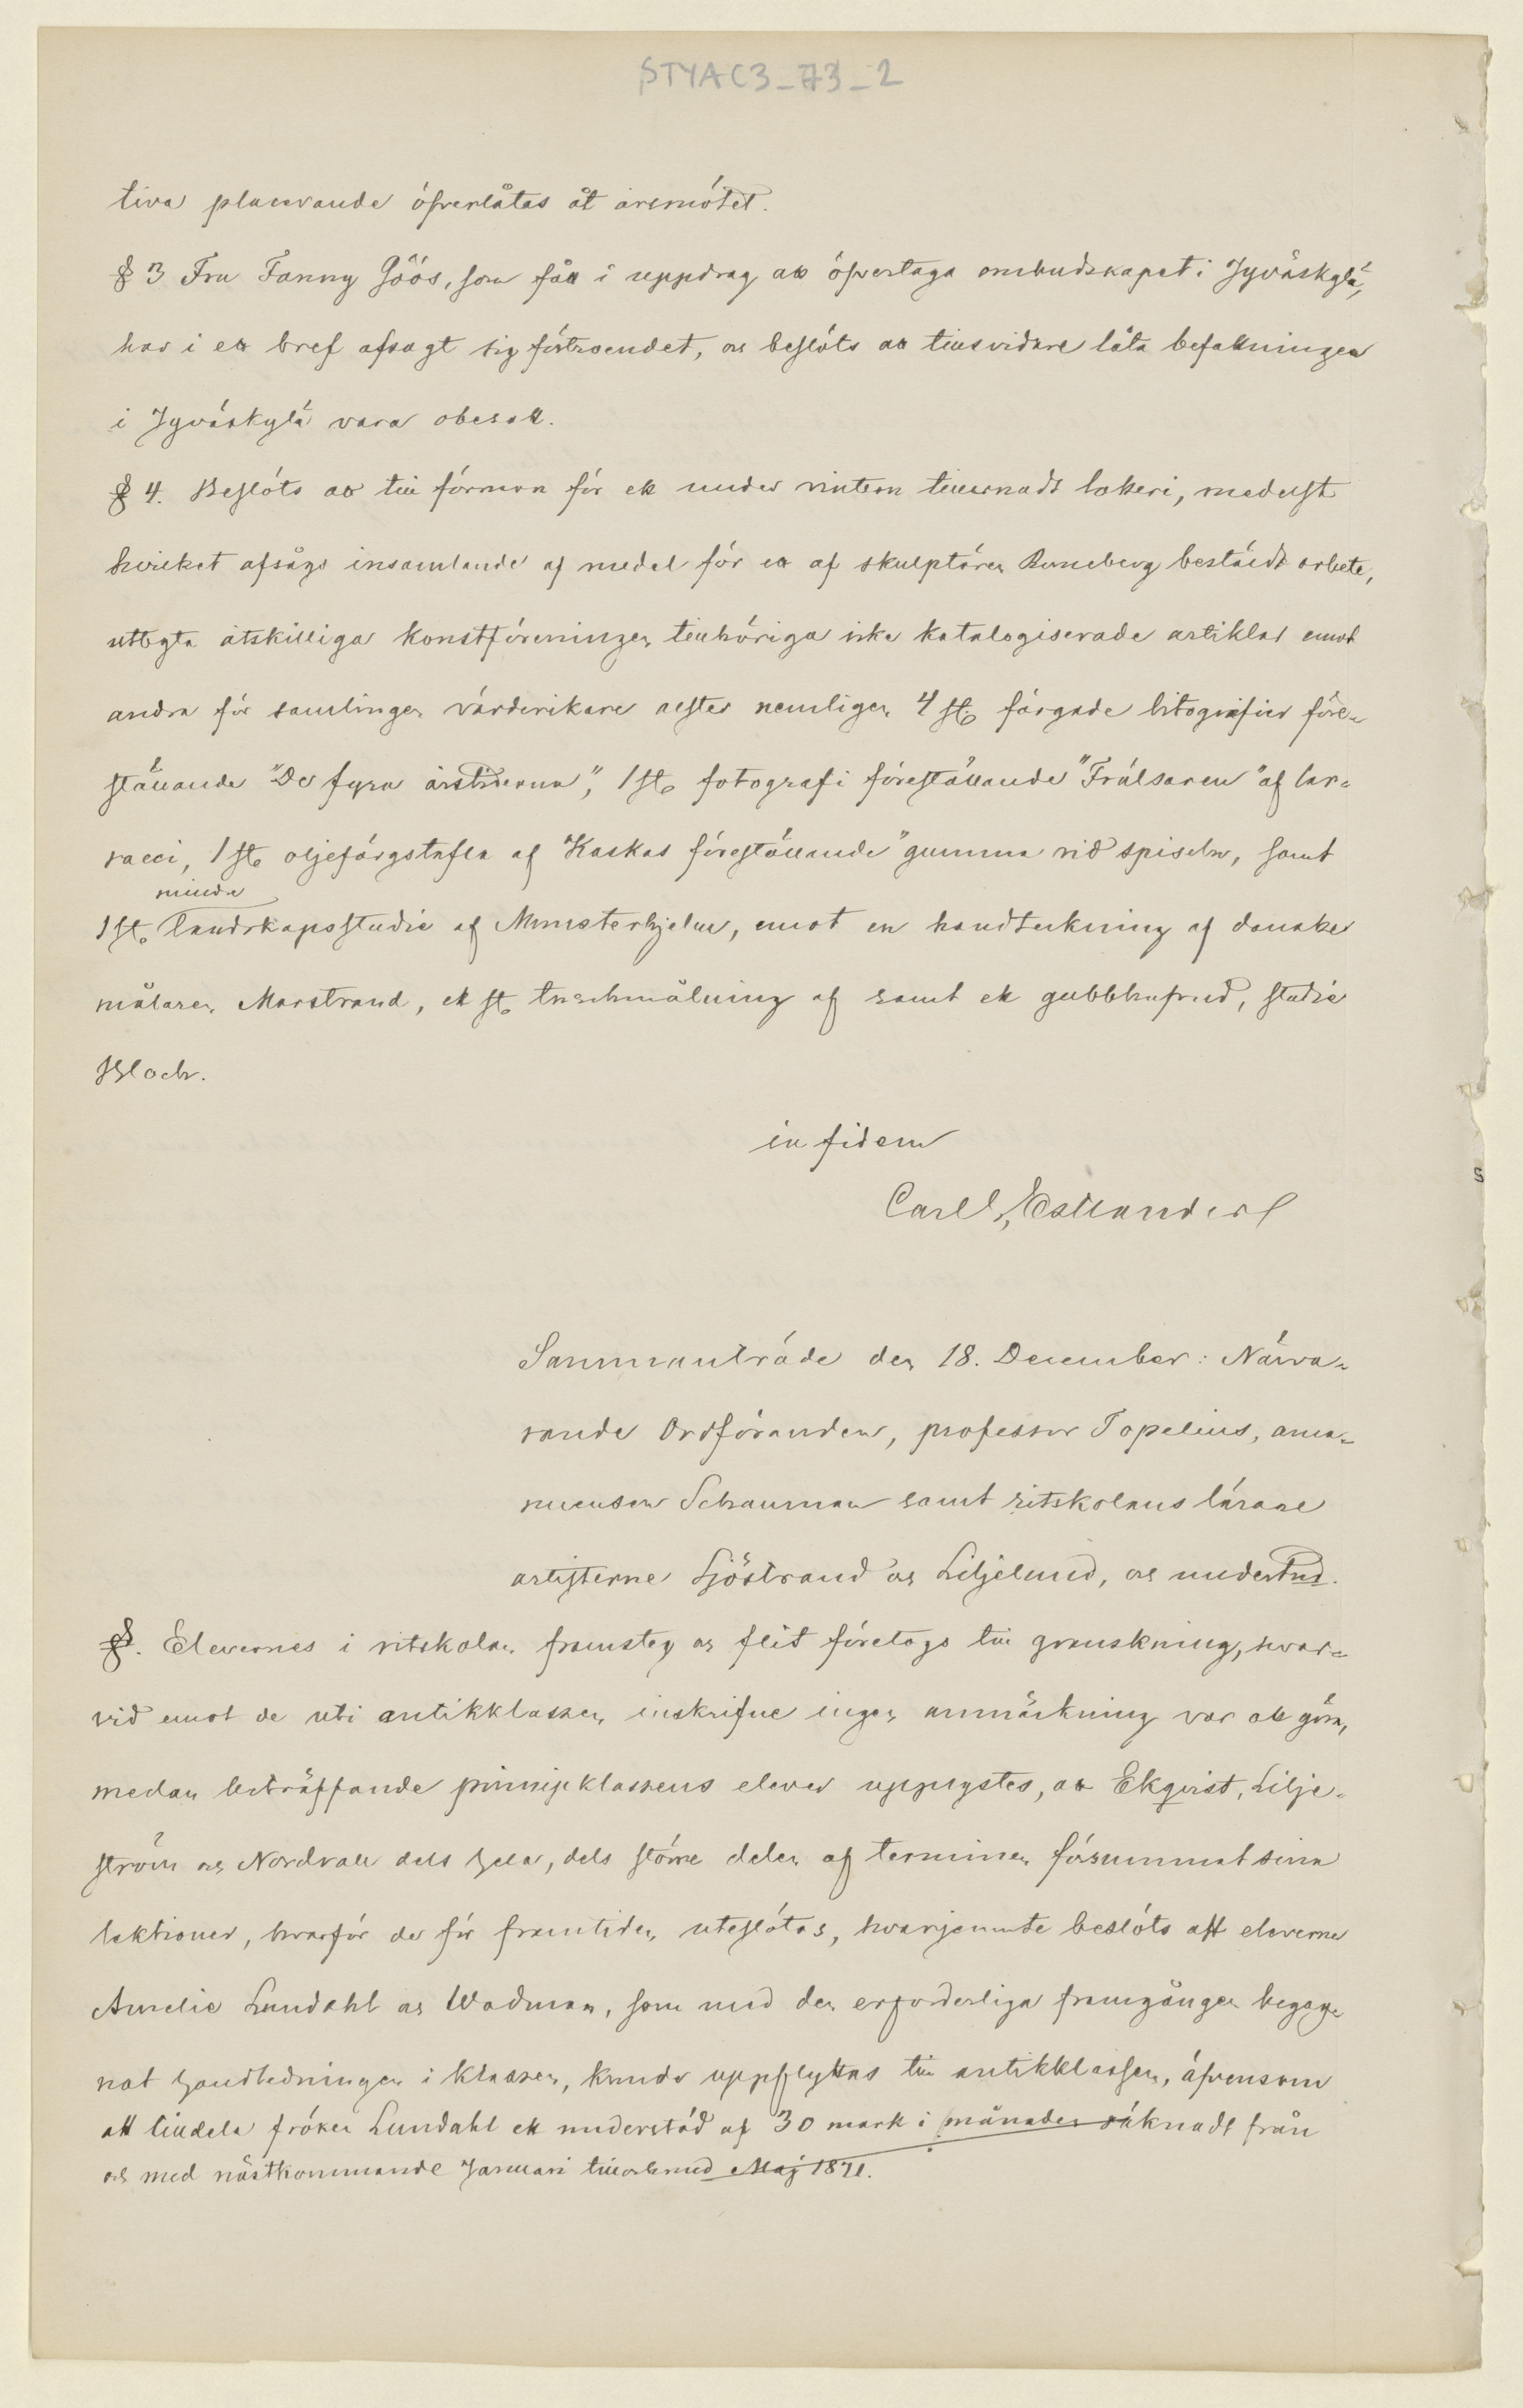 STYAC3_73_2
tiva placerande öfverlåtas åt årsmötet.
§ 3 Fru Fanny Göös, som fått i uppdrag att öfvertaga ombudskapet i Jyväskylä,
har i ett bref afsagt sig förtroendet, och beslöts att tillsvidare låta befattningen
i Jyväskylä vara obesatt.
§ 4. Beslöts att till förmon för ett under vintern tillernadt lotteri, medelst
hvilket afsågs insamlande af medel för ett af skulptören Runeberg bestäldt arbete,
utbyta åtskilliga konstföreningen tillhöriga icke katalogiserade artiklar emot
andra för samlingen värderikare alster nemligen 4 st. färgade litografier före-
ställande "De fyra årstiderna", 1 st. fotografi föreställande "Frälsaren" af Car-
racci, 1 st. oljefärgstafla af Kaskas föreställande "gumma vid spiseln, samt
mindre
1 st. landskapsstudie af Munsterhjelm, emot en handteckning af danske
målaren Marstrand, ett st. tuschmålning af samt ett gubbhufvud, studie
Bloch.
in fidem
Carl G. Estlander
Sammanträde den 18. December: Närva-
rande Ordföranden, professor Topelius, ama-
nuensen Schauman samt ritskolans lärare
artisterne Sjöstrand och Liljelund, och undertnd.
§. Elevernes i ritskolan framsteg och flit företogs till granskning, hvar-
vid emot de uti antikklassen inskrifne ingen anmärkning var att göra,
medan beträffande principklassens elever upplystes, att Ekqvist, Lilje-
ström och Nordvall dels hela, dels större delen af terminen försummat sina
lektioner, hvarför de för framtiden uteslötos, hvarjemnte beslöts att eleverne
Amelie Lundahl och Wadman, som med den erforderliga framgången begag-
nat handledningen i klassen, kunde uppflyttas till antikklassen, äfvensom
att tilldela fröken Lundahl ett understöd af 30 mark i månaden räknadt från
och med nästkommande Januari till och med Maj 1871.